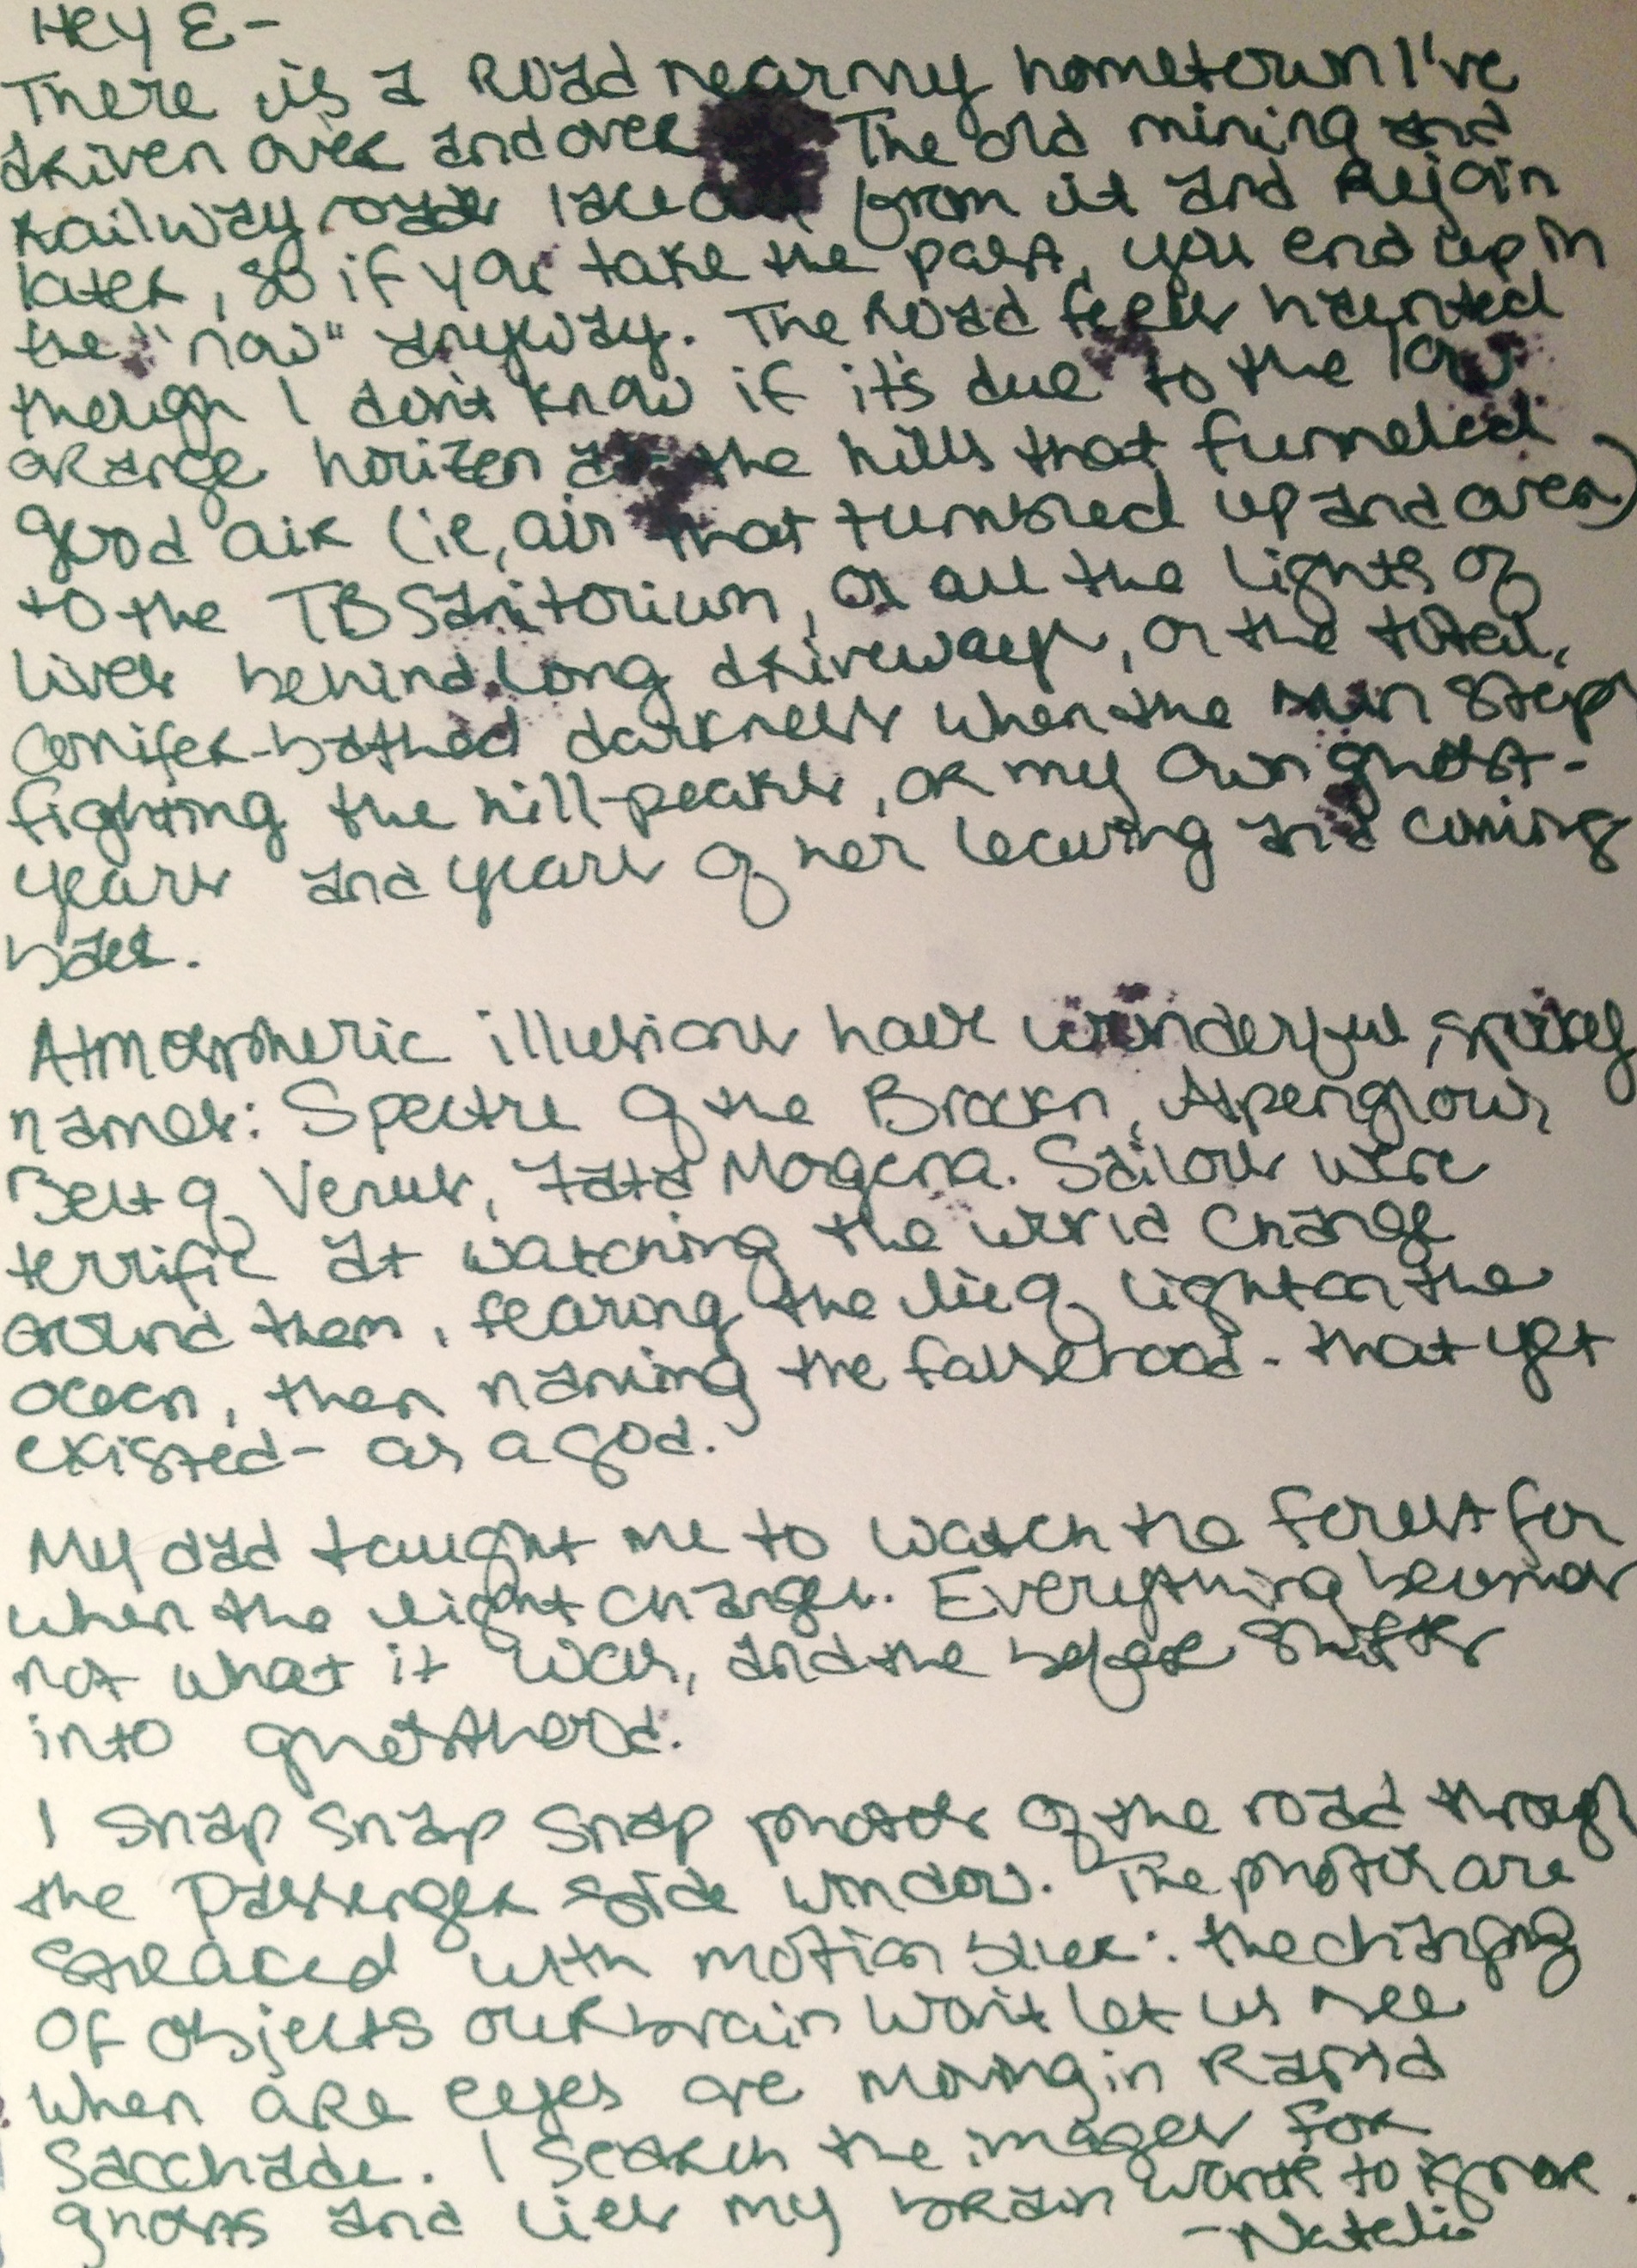 Hey E-
There is a Road near my hometown I've
driven over and over The old mining and
Railway roads lace from it and Rejoin
later, so if you take the past, you end up in
the "now" anyway. The Road feels haunted
though I don't know if it's due to the low
orange horizon or the hills that funneled
good air (ie, air that tumbled up and over)
to the TB Sanitorium, or all the lights of
lives behind long driveways, or the total,
conifer-bathed darkness when the sun stops
fighting the hill-peaks, or my own ghost-
years and years of her leaving and coming
back.
Atmospheric illusions have wonderful, spooky
names: Spectre of the Brockn, Alpenglow,
Belt of Venus, Fata Morgana. Sailors were
terrific at watching the world change
around them, fearing the lie of light on the
ocean, then naming the falsehood - that yet
existed - as a god.
My dad taught me to watch the forest for
when the light changes. Everything becomes
not what it was, and the before shifts
into ghosthood.
I snap snap snap photos of the road through
the passenger side window. The photos are
streaked with motion blur: the changing
of objects our brain won't let us see
when are eyes are moving in Rapid
Sacchade. I search the images for
ghosts and lies my brain wants to ignore.
-Natalie